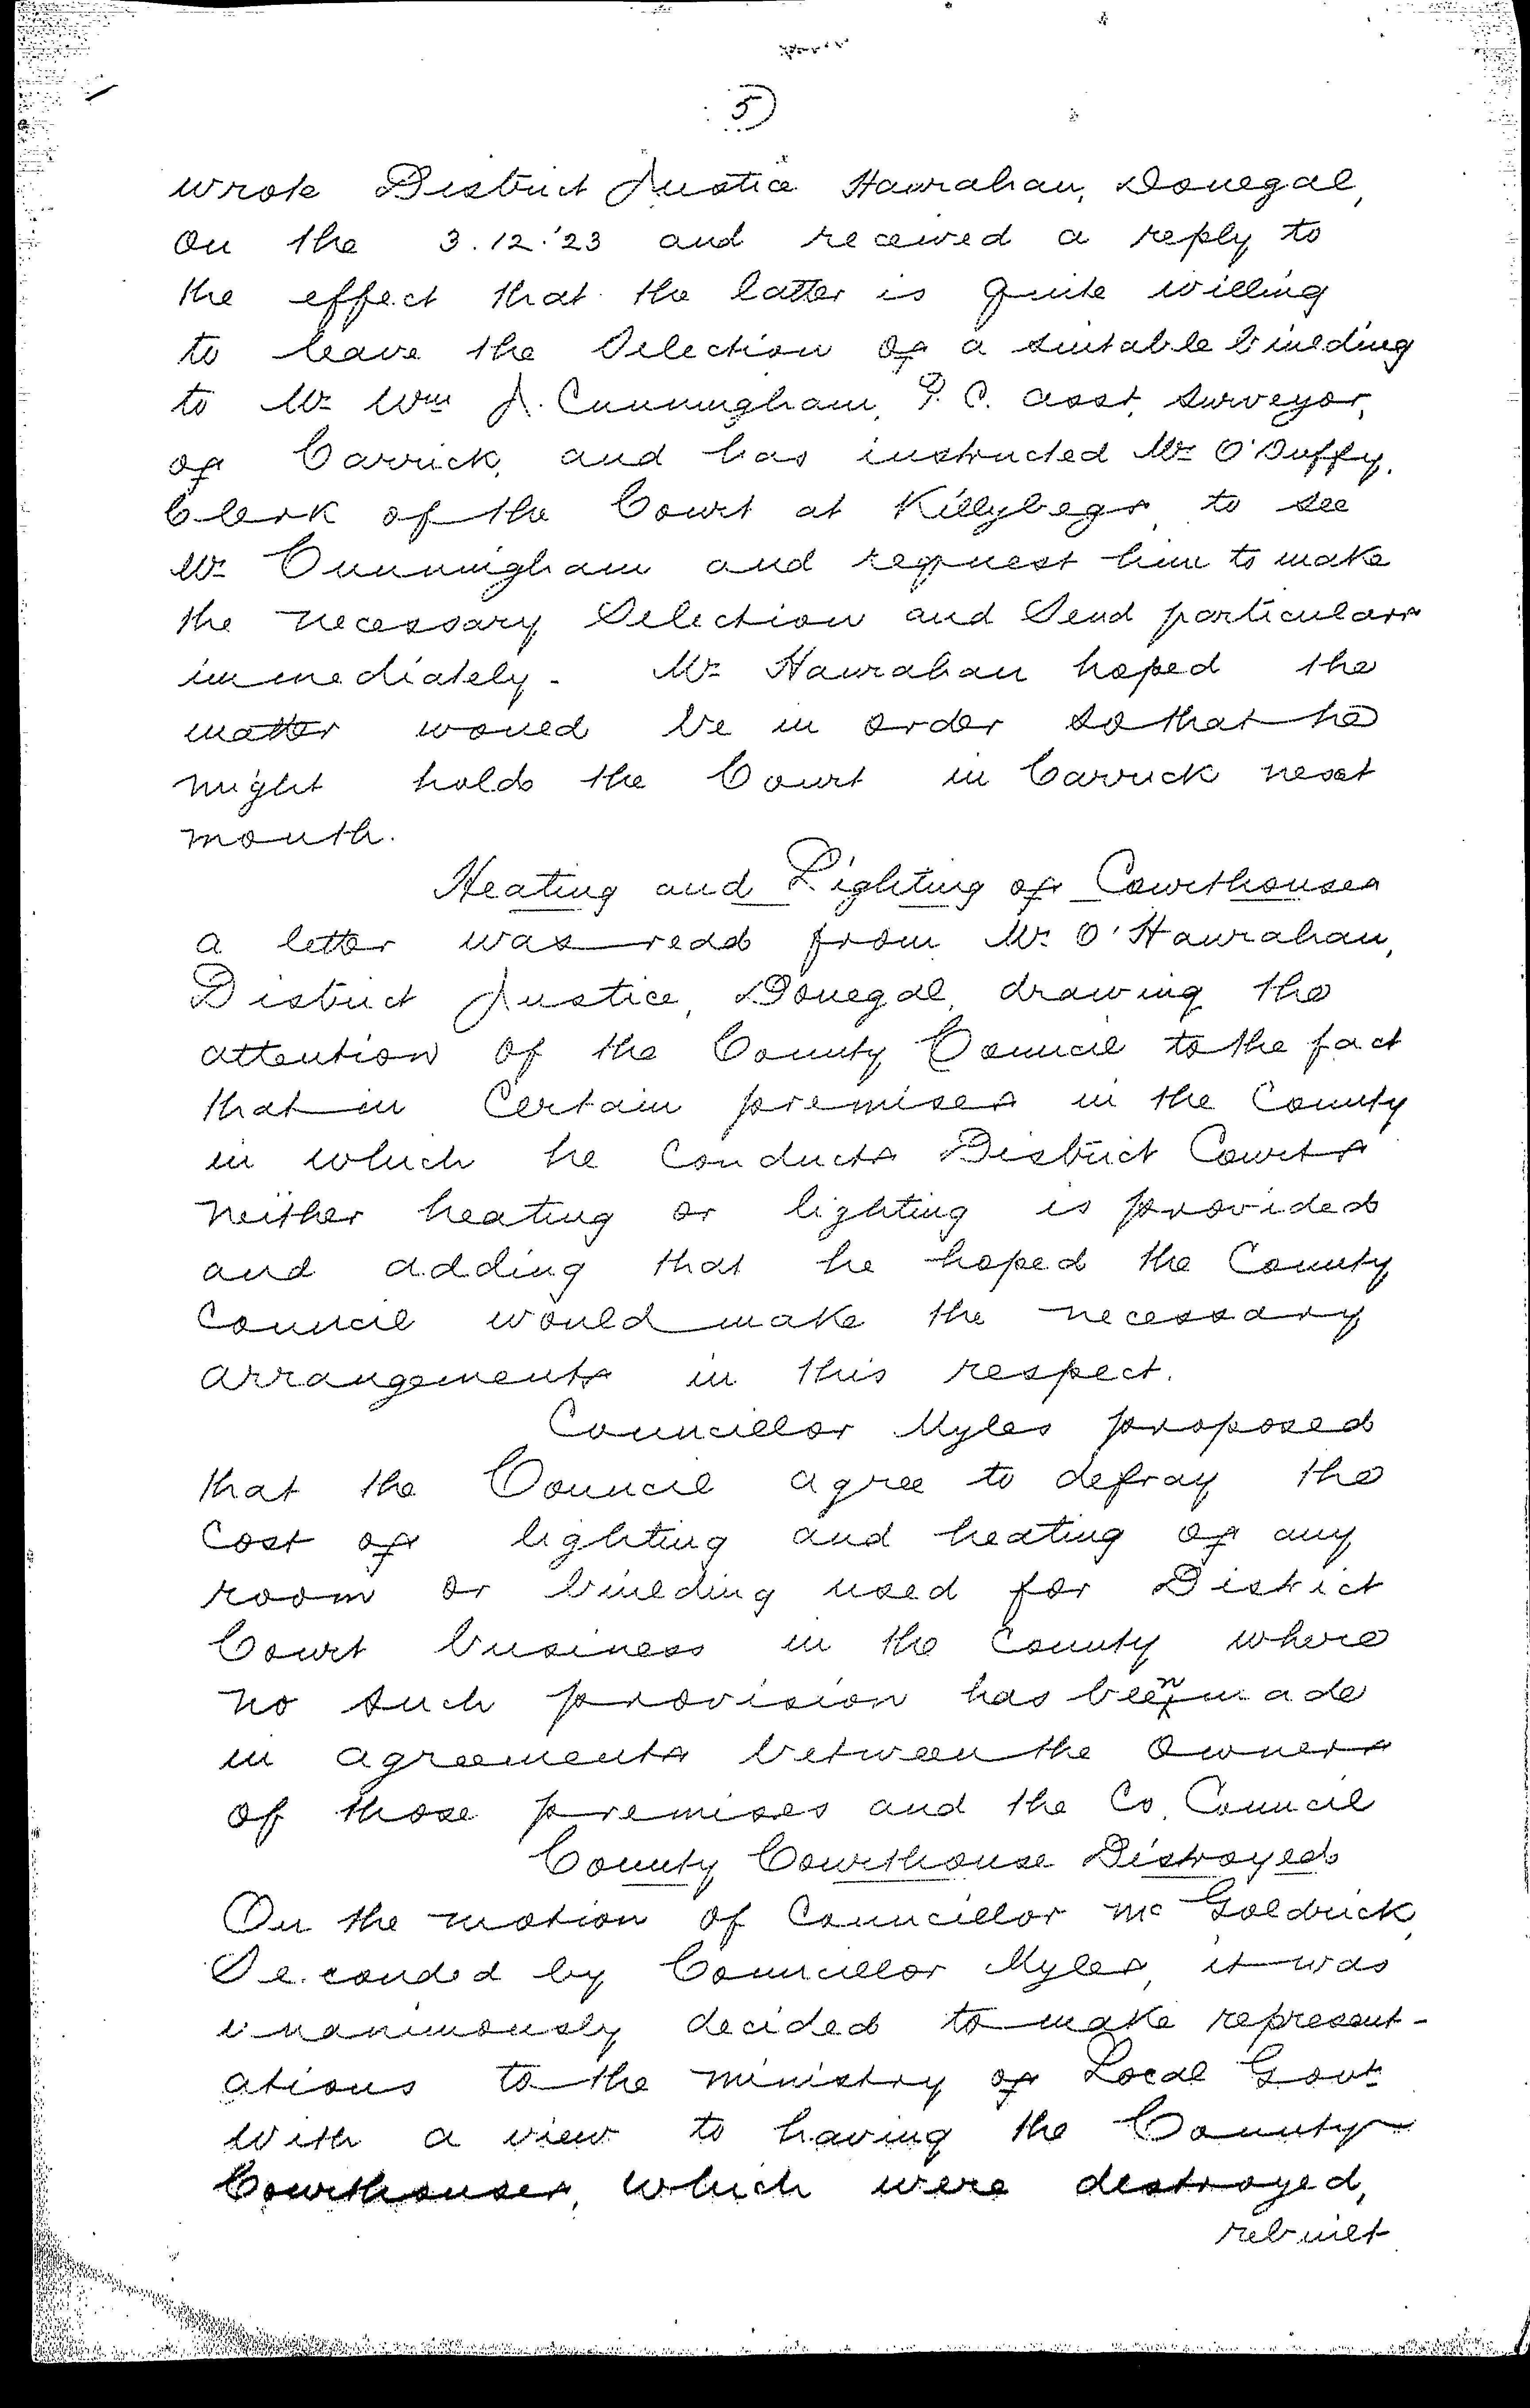 5)
wrote District Justice Hanrahan, Donegal,
on the 3.12.'23 and received a reply to
the effect that the latter is quite willing
to leave the Selection of a suitable building
to Mr Wm J. Cunningham, P. C. asst. surveyor,
of Carrick, and has instructed Mr O'Duffy,
Clerk of the Court at Killybegs, to see
Mr Cunningham and request him to make
the necessary Selection and Send particulars
immediately. Mr Hanrahan hoped the
matter would be in order so that he
might hold the Court in Carrick next
month.
Heating and Lighting of Courthouses
a letter was read from Mr O'Hanrahan,
District Justice, Donegal, drawing the
attention of the County Council to the fact
that in Certain premises in the County
in which he Conducts District Courts
neither heating or lighting is provided
and adding that he hoped the County
Council would make the necessary
arrangements in this respect.
Councillor Myles proposed
that the Council agree to defray the
Cost of lighting and heating of any
room or building used for District
Court business in the County where
no such provision has been made
in agreements between the Owners
of those premises and the Co. Council
County Courthouse Distroyed
On the motion of Councillor McGoldrick,
Seconded by Councillor Myles, it was
unanimously decided to make represent-
ations to the ministry of Local Govt
With a view to having the County
Courthouses, which were destroyed,
rebuilt